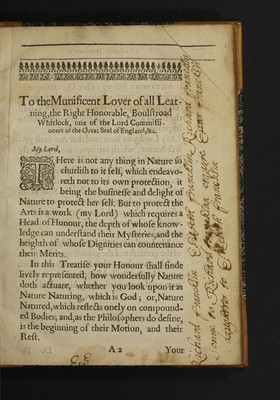 To the Munificent Lover of all Lear-
ning, the Right Honorable, Boulstroad
Whitlock, one of the Lord Commissi-
oners of the Great Seal of England, &c.
My Lord,
THere is not any thing in Nature so
churlish to it self, which endeavo-
reth not to its own protection, it
being the businesse and delight of
Nature to protect her self. But to protect the
Arts is a work (my Lord) which requires a
Head of Honour, the depth of whose know-
ledge can understand their Mysteries, and the
heighth of whose Dignities can countenance
their Merits.
In this Treatise your Honour shall finde
lively represented, how wonderfully Nature
doth actuate, whether you look upon it as
Nature Naturing, which is God; or, Nature
Natured, which reflects onely on compound-
ed Bodies; and, as the Philosophers do define,
is the beginning of their Motion, and their
Rest.
A 2 Your
Richard Francklin
Francklin
Richard Francklin